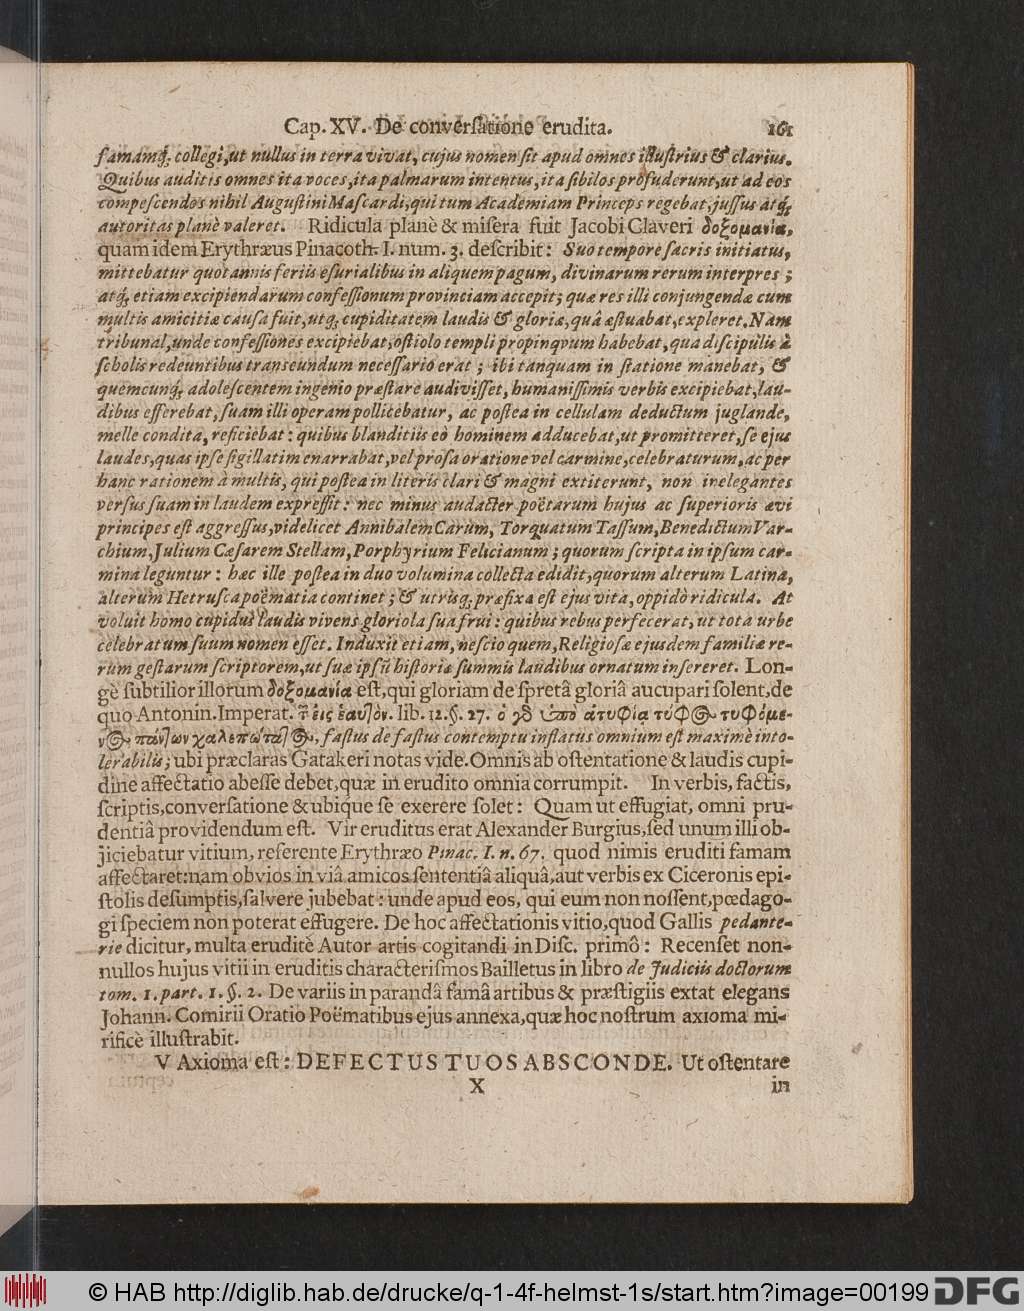 Cap. XV. De converſatione erudita. 161
famamq́; collegi, ut nullus in terra vivat, cujus nomen ſit apud omnes illuſtrius & clarius.
Quibus auditis omnes ita voces, ita palmarum intentus, ita ſibilos profuderunt, ut ad eos
compeſcendos nihil Auguſtini Maſcardi, qui tum Academiam Princeps regebat, juſſus atq́;
autoritas planè valeret. Ridicula planè & miſera fuit Jacobi Claveri δοξομανία,
quam idem Erythræus Pinacoth. I. num. 3. deſcribit: Suo tempore ſacris initiatus,
mittebatur quotannis feriis eſurialibus in aliquem pagum, divinarum rerum interpres;
atq́; etiam excipiendarum confeſſionum provinciam accepit; quæ res illi conjungendæ cum
multis amicitiæ cauſa fuit, utq́; cupiditatem laudis & gloriæ, quâ æſtuabat, expleret. Nam
tribunal, unde confeſſiones excipiebat, oſtiolo templi propinqvum habebat, qua diſcipulis è
ſcholis redeuntibus transeundum neceſſario erat; ibi tanquam in ſtatione manebat, &
quemcunq́; adoleſcentem ingenio præſtare audiviſſet, humaniſſimis verbis excipiebat, lau-
dibus efferebat, ſuam illi operam pollicebatur, ac poſtea in cellulam deductum juglande,
melle condita, reficiebat: quibus blanditiis eò hominem adducebat, ut promitteret, ſe ejus
laudes, quas ipſe ſigillatim enarrabat, vel proſa oratione vel carmine, celebraturum, ac per
hanc rationem â multis, qui poſtea in literis clari & magni extiterunt, non inelegantes
verſus ſuam in laudem expreſſit: nec minus audacter poëtarum hujus ac ſuperioris ævi
principes eſt aggreſſus, videlicet Annibalem Carum, Torquatum Taſſum, Benedictum Var-
chium, Julium Cæſarem Stellam, Porphyrium Felicianum; quorum ſcripta in ipſum car-
mina leguntur: hæc ille poſtea in duo volumina collecta edidit, quorum alterum Latina,
alterum Hetruſca poëmatia continet; & utrisq; præfixa eſt ejus vita, oppidò ridicula. At
voluit homo cupidus laudis vivens gloriola ſua frui: quibus rebus perfecerat, ut tota urbe
celebratum ſuum nomen eſſet. Induxit etiam, neſcio quem, Religioſæ ejusdem familiæ re-
rum geſtarum ſcriptorem, ut ſuæ ipſũ hiſtoriæ ſummis laudibus ornatum inſereret. Lon-
gè ſubtilior illorum δοξομανία eſt, qui gloriam de ſpretâ gloriâ aucupari ſolent, de
quo Antonin. Imperat. εἰς ἑαυτὸν. lib. 12. §. 27. ὁ γὸ ὑπὸ ἀτυφίᾳ τύφος τυφόμε-
νος πάντων χαλεπώτατος, faſtus de faſtus contemptu inflatus omnium eſt maximè into-
lerabilis; ubi præclaras Gatakeri notas vide. Omnis ab oſtentatione & laudis cupi-
dine affectatio abeſſe debet, quæ in erudito omnia corrumpit. In verbis, factis,
ſcriptis, converſatione & ubique ſe exerere ſolet: Quam ut effugiat, omni pru-
dentiâ providendum eſt. Vir eruditus erat Alexander Burgius, ſed unum illi ob-
jiciebatur vitium, referente Erythræo Pinac. I. n. 67. quod nimis eruditi famam
affectaret: nam obvios in viâ amicos ſententiâ aliquâ, aut verbis ex Ciceronis epi-
ſtolis deſumptis, ſalvere jubebat: unde apud eos, qui eum non noſſent, pœdago-
gi ſpeciem non poterat effugere. De hoc affectationis vitio, quod Gallis pedante-
rie dicitur, multa eruditè Autor artis cogitandi in Diſc. primô: Recenſet non-
nullos hujus vitii in eruditis characteriſmos Bailletus in libro de Judiciis doctorum
tom. 1. part. 1. §. 2. De variis in parandâ famâ artibus & præſtigiis extat elegans
Johann. Comirii Oratio Poëmatibus ejus annexa, quæ hoc noſtrum axioma mi-
rificè illuſtrabit.
V Axioma eſt: DEFECTUS TUOS ABSCONDE. Ut oſtentare
X in
© HAB http://diglib.hab.de/drucke/q-1-4f-helmst-1s/start.htm?image=00199 DFG